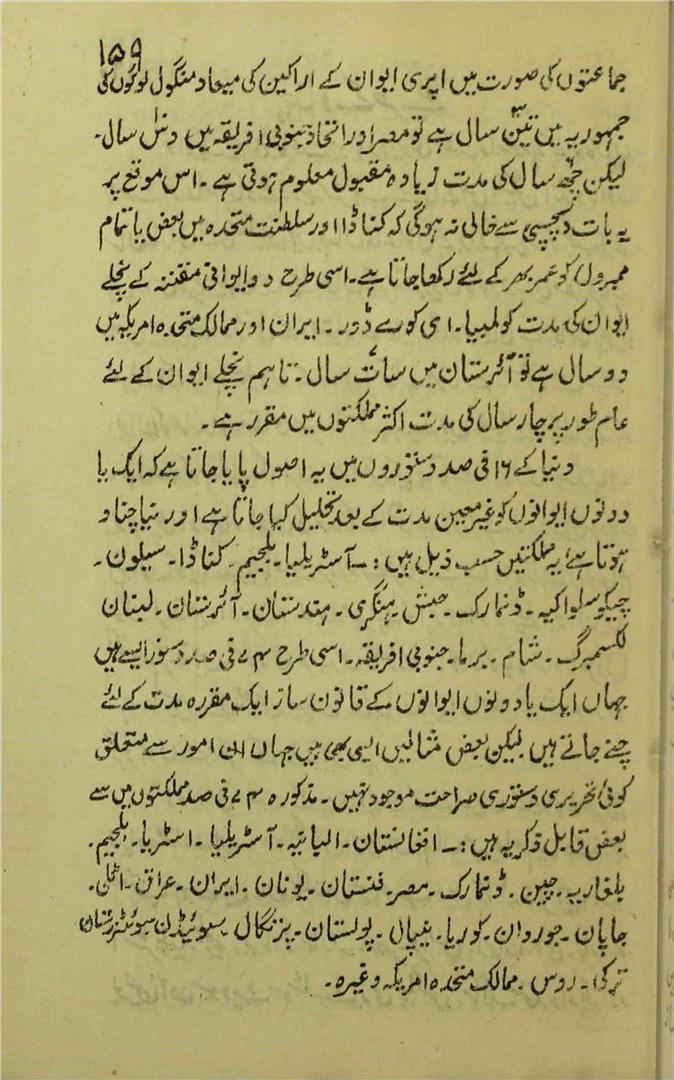 ۱۵۹
جماعتوں کی صورت میں اپری ایوان کے اراکین کی میعاد منگول لوگوں کی
جمہوریہ میں تین سال ہے تو مصر اور اتحاد جنوبی افریقہ میں دس سال۔
لیکن چھ سال کی مدت زیادہ مقبول معلوم ہوتی ہے۔ اس موقع پر
یہ بات دلچسپی سے خالی نہ ہوگی کہ کناڈا اور سلطنت متحدہ میں بعض یا تمام
ممبروں کو عمر بھر کے لئے رکھا جاتا ہے۔ اسی طرح دو ایوانی مقننہ کے نچلے
ایوان کی مدت کولمبیا۔ اے کورے ڈور۔ ایران اور ممالک متحدہ امریکہ میں
دو سال ہے تو آئرستان میں سات سال۔ تاہم نچلے ایوان کے لئے
عام طور پر چار سال کی مدت اکثر مملکتوں میں مقرر ہے۔
دنیا کے ۱۶ فی صد دستوروں میں یہ اصول پایا جاتا ہے کہ ایک یا
دونوں ایوانوں کو غیر معین مدت کے بعد تحلیل کیا جاتا ہے اور نیا چناو
ہوتا ہے؛ یہ مملکتیں حسب ذیل ہیں :۔ آسٹریلیا۔ بلجیم۔ کناڈا۔ سیلون۔
چیکوسلواکیہ۔ ڈنمارک۔ حبش۔ ہنگری۔ ہندستان۔ آئرستان۔ لبنان
لکسمبرگ۔ شام۔ برما۔ جنوبی افریقہ۔ اسی طرح ۷۴ فی صد دستور ایسے ہیں
جہاں ایک یا دونوں ایوانوں کے قانون ساز ایک مقررہ مدت کے لئے
چنے جاتے ہیں لیکن بعض مثالیں ایسی بھی ہیں جہاں ان امور سے متعلق
کوئی تحریری دستوری صراحت موجود نہیں۔ مذکورہ ۷۴ فی صد مملکتوں میں سے
بعض قابل ذکر یہ ہیں :۔ افغانستان۔ البانیہ۔ آسٹریلیا۔ اسٹریا۔ بلجیم۔
بلغاریہ۔ چین۔ ڈنمارک۔ مصر۔ فنستان۔ یونان۔ ایران۔ عراق۔ اٹلی۔
جاپان۔ جوردان۔ کوریا۔ نیپال۔ پولستان۔ پرتگال۔ سوئیڈن سوئٹزرستان
ترکی۔ روس۔ ممالک متحدہ امریکہ وغیرہ۔